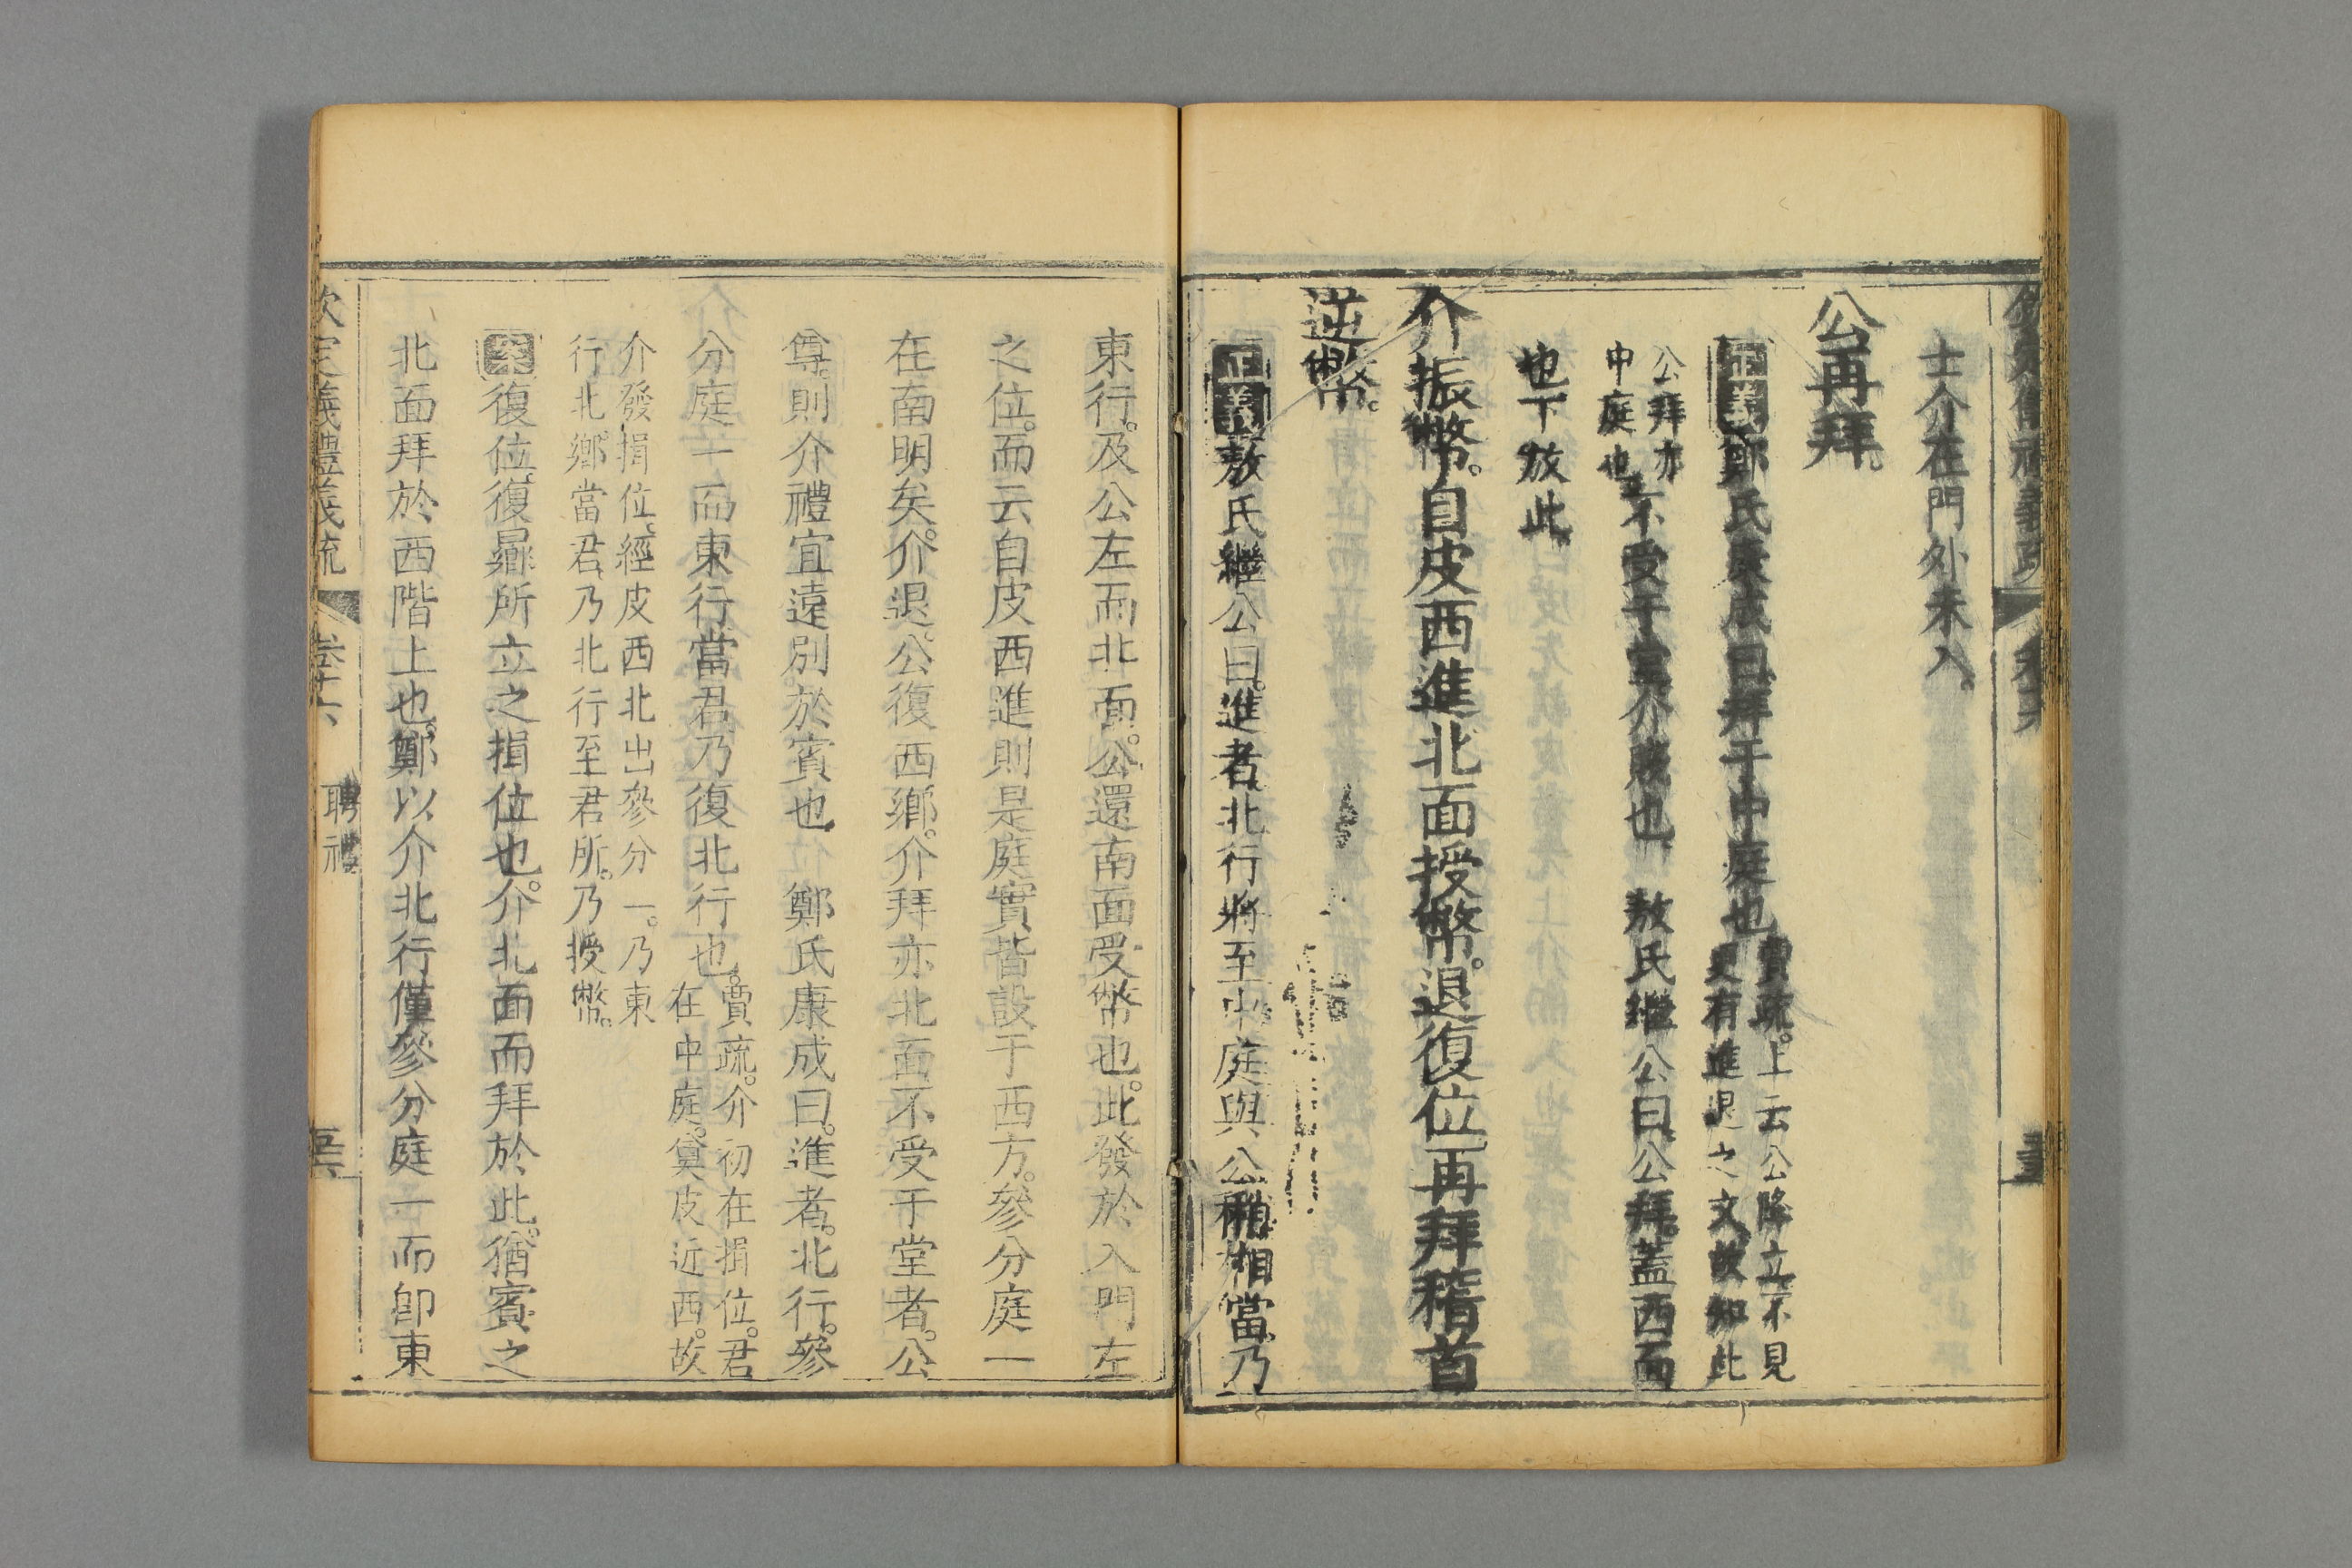 士介在門外未入。
公再拜。
正義鄭氏康成曰拜于中庭也
賈疏。上云公降立。不見
更有進退之文。故知此
公拜亦
中庭也
不受于堂介賤也　敖氏繼公曰公拜蓋西面
也下放此。
介振幣。自皮西進北面授幣。退復位再拜稽首
逆幣。
正義敖氏繼公曰。進者北行將至中庭與公稍相當乃
東行。及公左而北面。公還南面受幣也。此發於入門左
之位。而云自皮西進則是庭實皆設于西方。參分庭一
在南明矣。介退。公復西鄉。介拜亦北面不受于堂者。公
尊。則介禮宜遠別於賓也　鄭氏康成曰。進者。北行。參
分庭一而東行當君乃復北行也。
賈疏。介初在揖位。君
在中庭。奠皮近西。故
介發揖位。經皮西北出參分一。乃東
行北鄉當君乃北行至君所。乃授幣。
案復位。復曏所立之揖位也。介北面而拜於此。猶賓之
北面拜於西階上也。鄭以介北行僅參分庭一而卽東
欽定義禮義疏　卷十六　聘禮